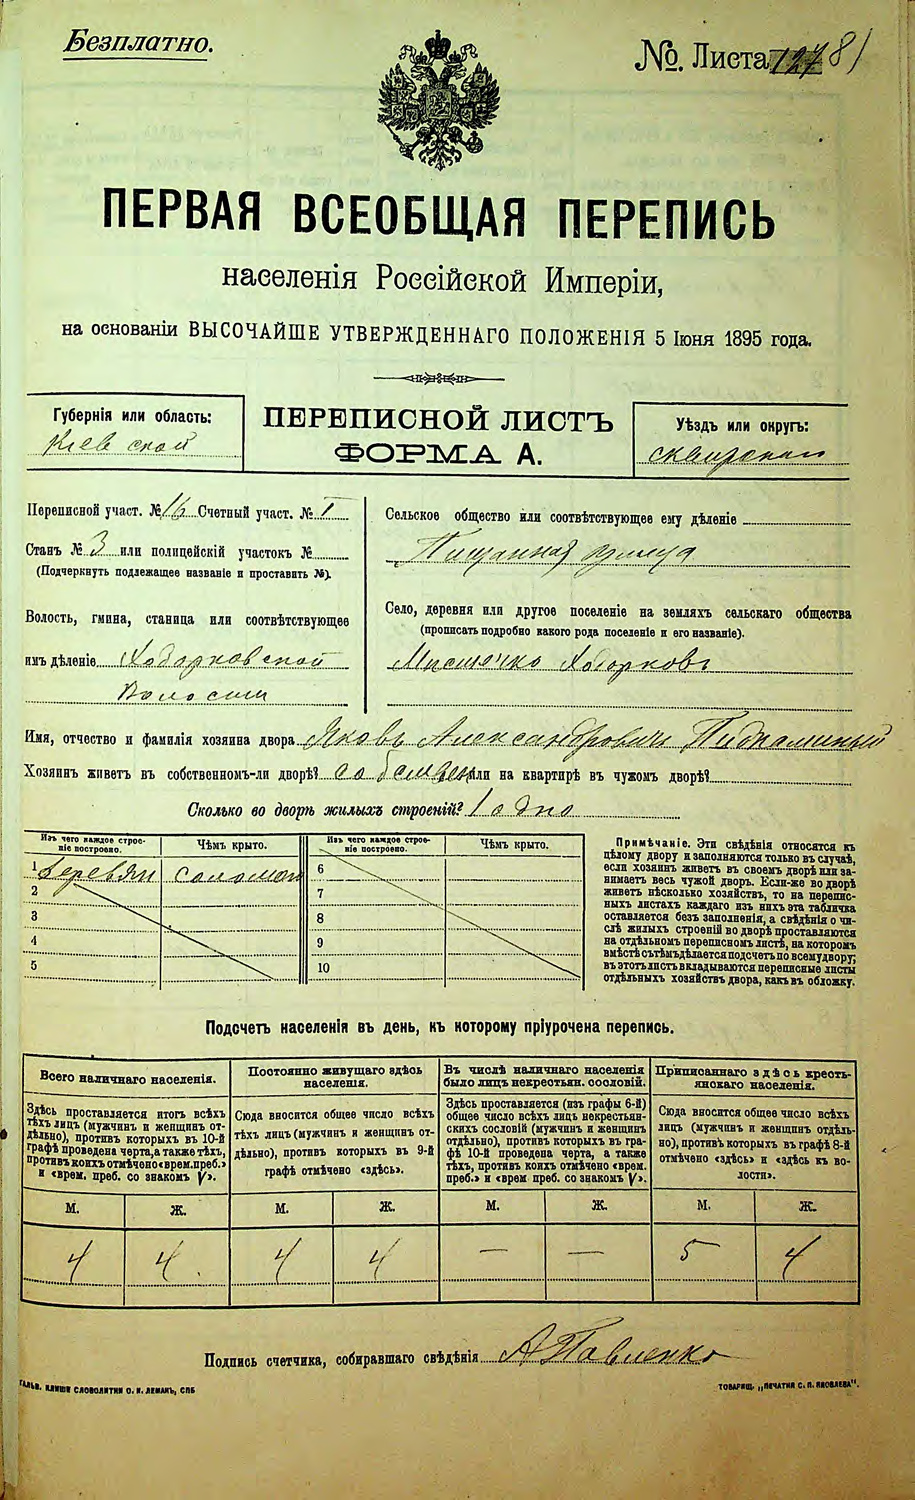 Безплатно.
№. Листа 127 81
ПЕРВАЯ ВСЕОБЩАЯ ПЕРЕПИСЬ
населенія Россійской Имперіи,
на основаніи ВЫСОЧАЙШЕ УТВЕРЖДЕННАГО ПОЛОЖЕНІЯ 5 Іюня 1895 года.
Губернія или область:
Кіевской
ПЕРЕПИСНОЙ ЛИСТЪ
ФОРМА А.
Уѣздъ или округъ:
Сквирскаго
Переписной участ. № 16 Счетный участ. № I
Станъ № 3 или полицейскій участокъ №
(Подчеркнуть подлежащее названіе и проставить №).
Волость, гмина, станица или соотвѣтствующее
имъ дѣленіе Ходорковской
Волости
Сельское общество или соотвѣтствующее ему дѣленіе
Пищанная улица
Село, деревня или другое поселеніе на земляхъ сельскаго общества
(прописать подробно какого рода поселеніе и его названіе).
Мистечко Ходорковъ
Имя, отчество и фамилія хозяина двора Яковъ Александровичъ Пидкаминый
Хозяинъ живетъ въ собственномъ-ли дворѣ? собствен или на квартирѣ въ чужомъ дворѣ?
Сколько во дворѣ жилыхъ строеній? 1 одно
Изъ чего каждое строе-
ніе построено.
Чѣмъ крыто.
1 деревян соломой
2
3
4
5
Изъ чего каждое строе-
ніе построено.
Чѣмъ крыто.
6
7
8
9
10
Примѣчаніе. Эти свѣдѣнія относятся къ
цѣлому двору и заполняются только въ случаѣ,
если хозяинъ живетъ въ своемъ дворѣ или за-
нимаетъ весь чужой дворъ. Если-же во дворѣ
живетъ нѣсколько хозяйствъ, то на перепис-
ныхъ листахъ каждаго изъ нихъ эта табличка
оставляется безъ заполненія, а свѣдѣнія о чи-
слѣ жилыхъ строеній во дворѣ проставляются
на отдѣльномъ переписномъ листѣ, на которомъ
вмѣстѣ съ тѣмъ дѣлается подсчетъ по всему двору;
въ этотъ листъ вкладываются переписные листы
отдѣльныхъ хозяйствъ двора, какъ въ обложку.
Подсчетъ населенія въ день, къ которому пріурочена перепись.
Всего наличнаго населенія.
Здѣсь проставляется итогъ всѣхъ
тѣхъ лицъ (мужчинъ и женщинъ от-
дѣльно), противъ которыхъ въ 10-й
графѣ проведена черта, а также тѣхъ,
противъ коихъ отмѣчено «врем. преб.»
и «врем. преб. со знакомъ V».
Постоянно живущаго здѣсь
населенія.
Сюда вносится общее число всѣхъ
тѣхъ лицъ (мужчинъ и женщинъ от-
дѣльно), противъ которыхъ въ 9-й
графѣ отмѣчено «здѣсь».
Въ числѣ наличнаго населенія
было лицъ некрестьян. сословій.
Здѣсь проставляется (изъ графы 6-й)
общее число всѣхъ лицъ некрестьян-
скихъ сословій (мужчинъ и женщинъ
отдѣльно), противъ которыхъ въ гра-
фѣ 10-й проведена черта, а также
тѣхъ, противъ коихъ отмѣчено «врем.
преб.» и «врем. преб. со знакомъ V».
Приписаннаго здѣсь кресть-
янскаго населенія.
Сюда вносится общее число всѣхъ
лицъ (мужчинъ и женщинъ отдѣль-
но), противъ которыхъ въ графѣ 8-й
отмѣчено «здѣсь» и «здѣсь къ во-
лости».
М. Ж. М. Ж. М. Ж. М. Ж.
4 4 4 4 — — 5 4
Подпись счетчика, собиравшаго свѣдѣнія А Павленко
ГАЛЬВ. КЛИШИ СЛОВОЛИТНИ О. И. ЛЕМАНЪ, СПБ
ТОВАРИЩ. „ПЕЧАТНЯ С. П. ЯКОВЛЕВА".